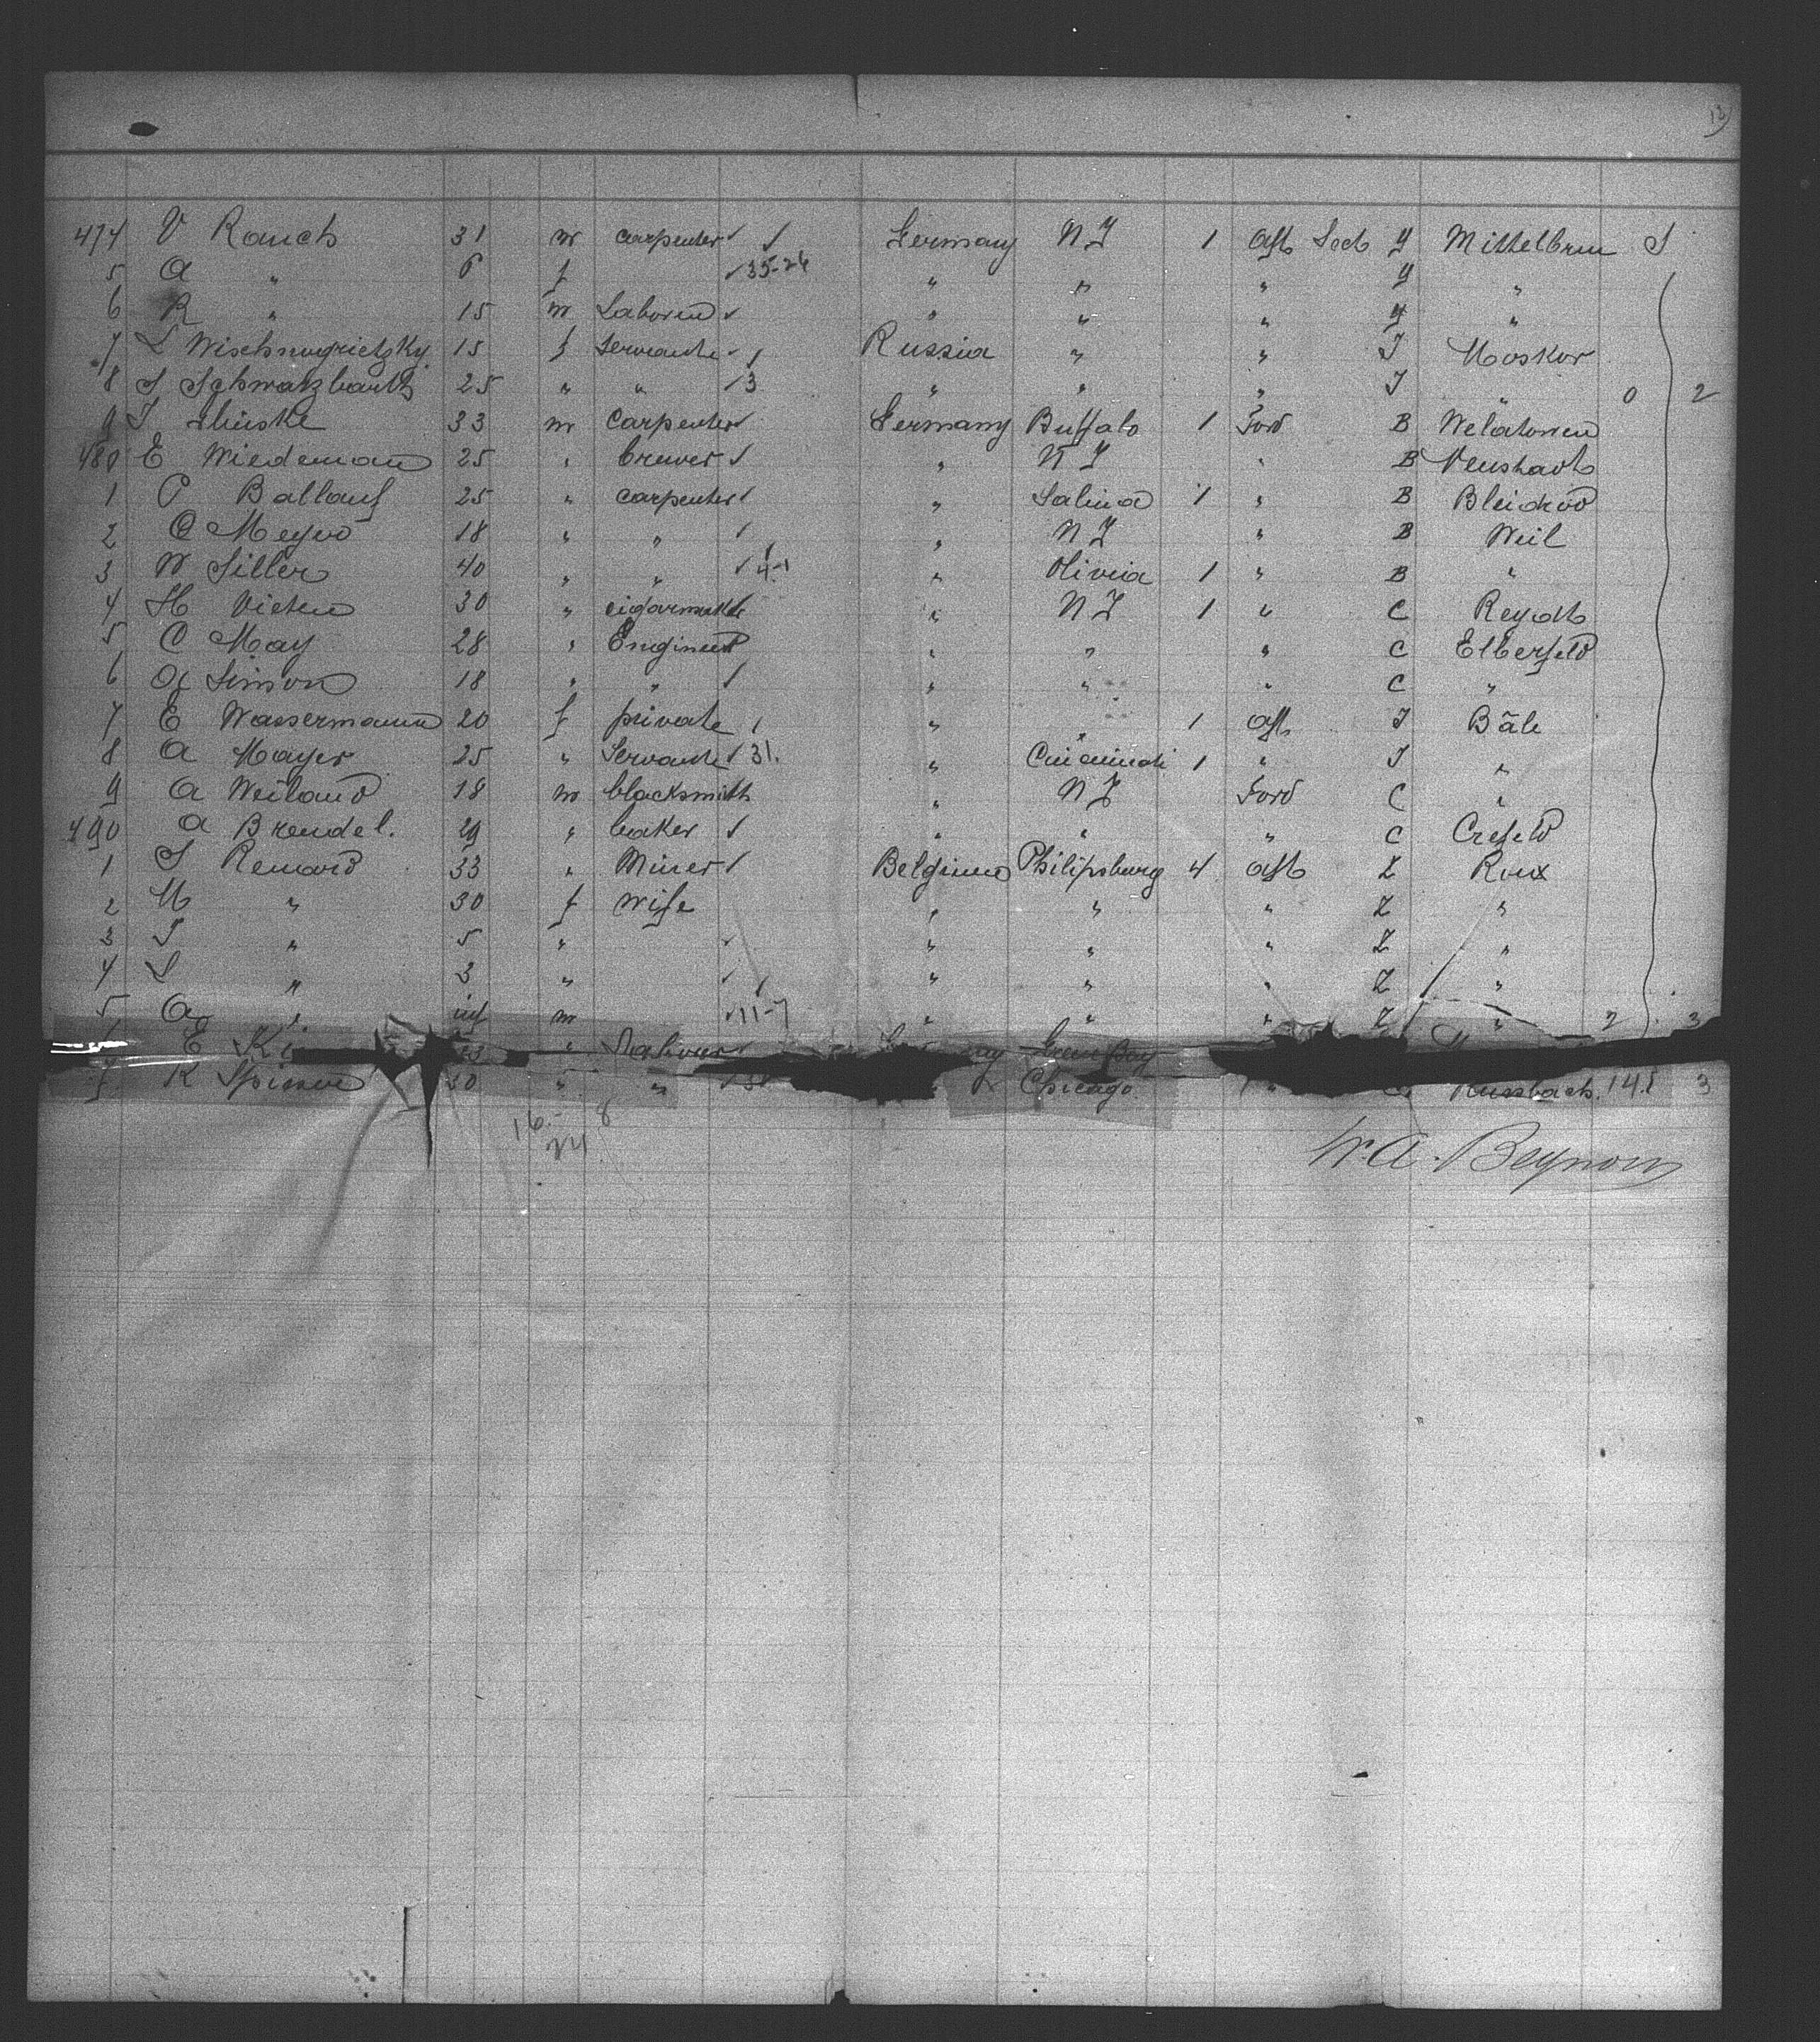 13
474 V Rauch 31 m carpenter Germany N Y 1 Aft Sect Y Mittelbrun S
5 A " 6 f 35-26 " " " Y "
6 R " 15 m Laborer " " " Y "
7 L Wischnugrietzky 15 f Servante Russia " " J Moskov
8 S Schwarzbarth 25 " " 3 " " " J " 0 2
9 33 m carpenter Germany Buffalo 1 Ford B
480 E Wiedemann 25 " brewer " N Y " B
1 P Ballauf 25 " carpenter " Salina 1 " B
2 C Meyer 18 " " " N Y " B Weil
3 W Siller 40 " " 4-1 " Olivia 1 " B "
4 H Vieten 30 " cigarmaker " N Y 1 " C Reydt
5 C May 28 " Engineer " " " C Elberfeld
6 Simon 18 " " " " " C "
7 E Wassermann 20 f private " 1 Aft J Bâle
8 A Mayer 25 " Servante 31. " Cincinnati 1 " J "
9 A Weiland 18 m blacksmith " N Y Ford C "
490 A Brendel. 29 " baker " " " C Crefeld
1 J Renard 33 " Miner Belgium Philipsburg 4 Aft Z Roux
2 M " 30 f wife " " " Z "
3 J " 5 " " " " Z "
4 L " 3 " " " " Z "
5 A " inf m 11-7 " " " Z " 2 3
E Green Bay
7 R 30 " " Chicago " Russbach. 14.1 3
16. 8
24
W. A. Beynon